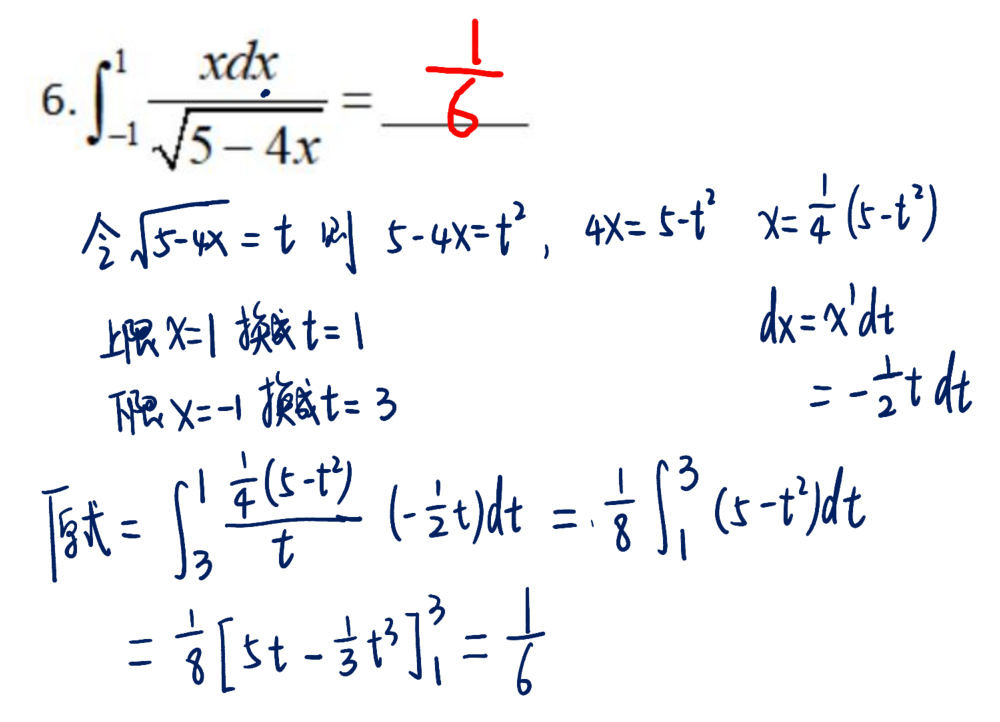 6. ∫_{-1}^{1} xdx / √(5 − 4x) = 1/6
令 √(5-4x) = t 则 5-4x=t², 4x=5-t² x=1/4(5-t²)
上限 x=1 换成 t=1 dx=x'dt
下限 x=-1 换成 t=3 = -1/2 t dt
原式 = ∫_{3}^{1} 1/4(5-t²) / t (-1/2 t)dt = 1/8 ∫_{1}^{3} (5-t²)dt
= 1/8 [5t - 1/3 t³]_{1}^{3} = 1/6